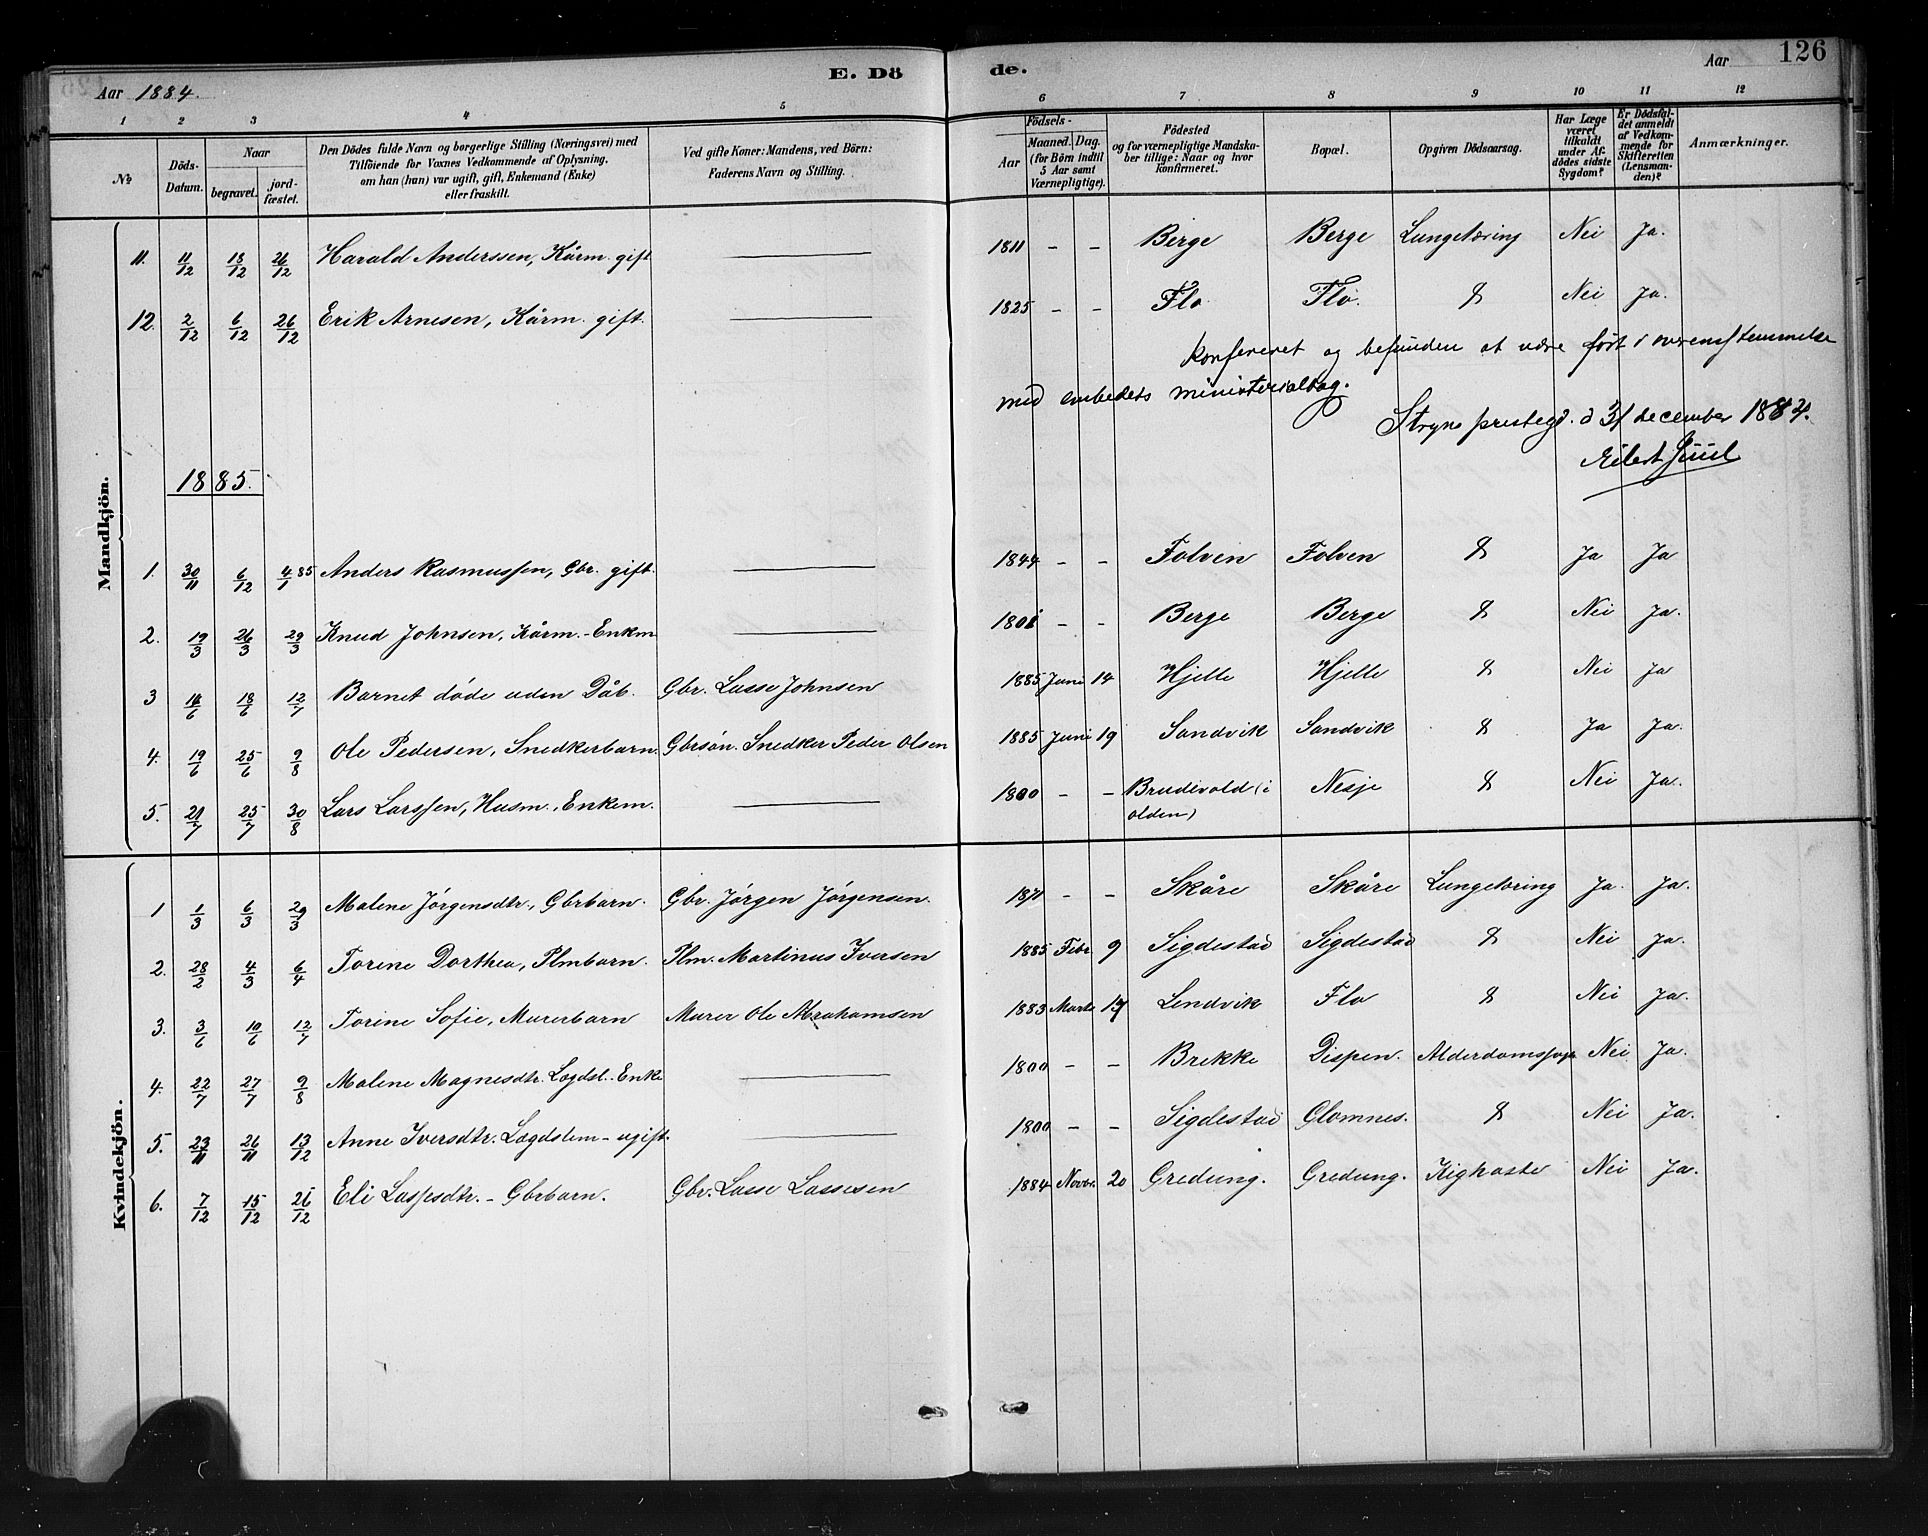 126
E. Dö de.
Aar 1884.
Aar
1 2 3 4 5 6 7 8 9 10 11 12
№
Döds-Datum.
Naar
begravet.
jord-fæstet.
Den Dödes fulde Navn og borgerlige Stilling (Næringsvei) med
Tilföiende for Voxnes Vedkommende af Oplysning,
om han (hun) var ugift, gift, Enkemand (Enke)
eller fraskilt.
Ved gifte Koner: Mandens, ved Börn:
Faderens Navn og Stilling.
Födsels-
Aar
Maaned. Dag.
(for Börn indtil
5 Aar samt
Værnepligtige).
Födested
og for værnepligtige Mandska-
ber tillige: Naar og hvor
konfirmeret.
Bopæl.
Opgiven Dödsaarsag.
Har Læge
været
tilkaldt
under Af-
dödes sidste
Sygdom?
Er Dödsfal-
det anmeldt
af Vedkom-
mende for
Skifteretten
(Lensman-
den)?
Anmærkninger.
Mandkjön.
11. 11/12 18/12 26/12 Harald Anderssen, Kårm. gift — 1811 - - Berge Berge Lungetæring Nei Ja.
12. 2/12 6/12 26/12 Erik Arnesen, Kårm. gift. — 1825 - - Flo Flo. " Nei Ja.
Konfereret og befunden at være ført i overensstemmelse
med embedets ministerialbog.
Stryns prestegd. d 31 december 1884.
Eilert Juul
1885.
1. 30/11 6/12 4/1 85 Anders Rasmussen, Gbr. gift. — 1844 - - Folven Folven " Ja Ja
2. 19/3 26/3 29/3 Knud Johnsen, Kårm.-Enkm — 1801 - - Berge Berge " Nei Ja.
3 14/6 18/6 12/7 Barnet døde uden Dåb. Gbr. Lasse Johnsen 1885 Juni 14 Hjelle Hjelle " Nei Ja
4. 19/6 25/6 9/8 Ole Pedersen, Snedkerbarn. Gbrsøn. Snedker Peder Olsen 1885 Juni 19 Sandvik Sandvik " Ja Ja.
5. 21/7 25/7 30/8 Lars Larssen, Husm., Enkem. — 1800 - - Brudevold (i olden) Nesje " Nei Ja.
Kvindekjön.
1 1/3 6/3 29/3 Malene Jørgensdtr., Gbrbarn. Gbr. Jørgen Jørgensen. 1871 - - Skåre Skåre Lungetæring Ja. Ja.
2. 28/2 4/3 6/4 Torine Dorthea, Plmbarn. Plm. Martinus Iversen 1885 Febr. 9 Sigdestad Sigdestad " Nei Ja.
3. 3/6 10/6 12/7 Torine Sofie, Murerbarn Murer Ole Abrahamsen 1883 Marts 19 Lendvik Flo " Nei Ja.
4. 22/7 27/7 9/8 Malene Magnesdtr. Lægdsl.. Enke — 1800 - - Brekke Dispen. Alderdomssvgh. Nei Ja.
5. 23/11 26/11 13/12 Anne Iversdtr. Lægdslem - ugift. — 1800 - - Sigdestad Glomnes. " Nei Ja.
6. 7/12 15/12 26/12 Eli Lassesdtr. - Gbrbarn. Gbr. Lasse Lassesen 1884 Novbr. 20 Gredung. Gredung. Kighoste Nei Ja.